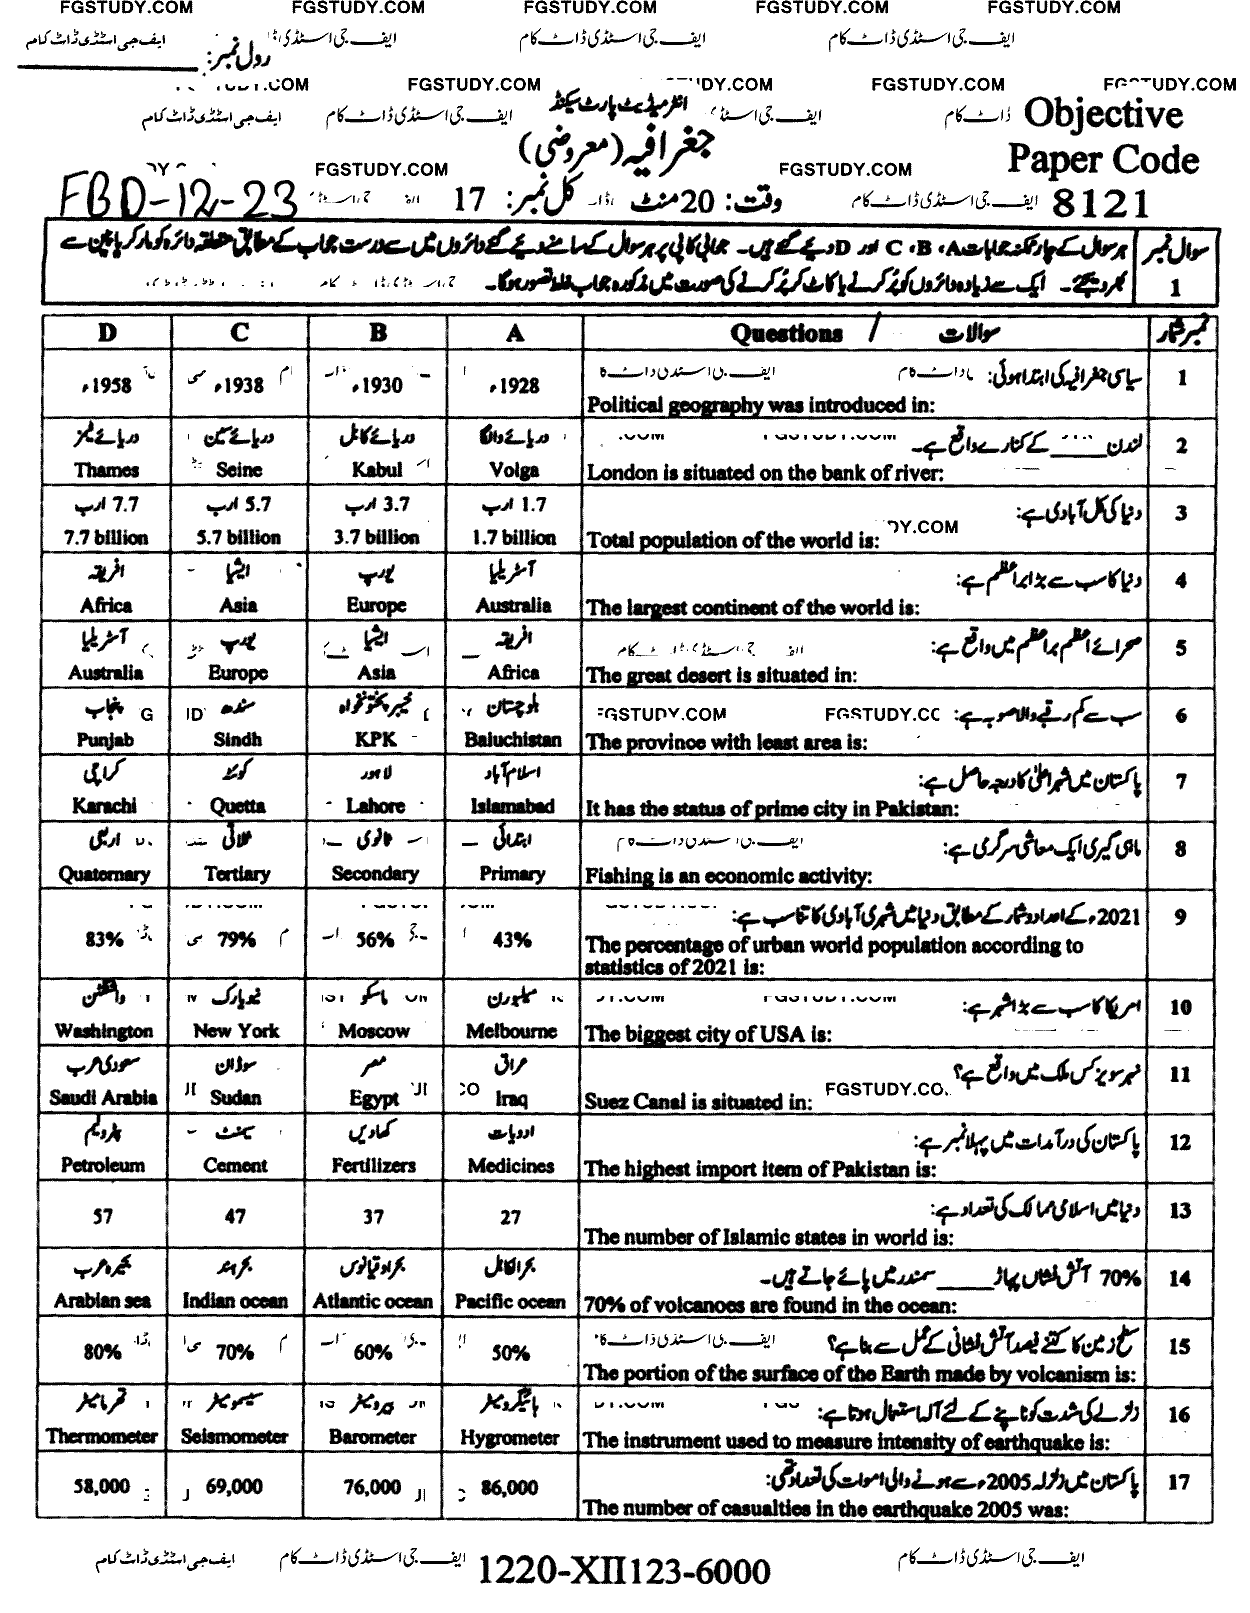 FGSTUDY.COM FGSTUDY.COM FGSTUDY.COM FGSTUDY.COM FGSTUDY.COM
ایف جی اسٹڈی ڈاٹ کام ایف جی اسٹڈی ڈاٹ کام ایف جی اسٹڈی ڈاٹ کام
رول نمبر:
FGSTUDY.COM FGSTUDY.COM
انٹرمیڈیٹ پارٹ سیکنڈ
ایف جی اسٹڈی ڈاٹ کام ایف جی اسٹڈی ڈاٹ کام
Objective
جغرافیہ (معروضی)
Paper Code
FGSTUDY.COM FGSTUDY.COM
FBD-12-23
وقت: 20 منٹ کل نمبر: 17
ایف جی اسٹڈی ڈاٹ کام
8121
سوال نمبر 1
ہر سوال کے چار ممکنہ جوابات A، B، C اور D دیے گئے ہیں۔ جوابی کاپی پر ہر سوال کے سامنے دیے گئے دائروں میں سے درست جواب کے مطابق متعلقہ دائرہ کو مارکر یا پین سے
بھر دیجئے۔ ایک سے زیادہ دائروں کو پُر کرنے یا کاٹ کر پُر کرنے کی صورت میں مذکورہ جواب غلط تصور ہوگا۔
D C B A Questions / سوالات نمبر شمار
1 سیاسی جغرافیہ کی ابتدا ہوئی:
Political geography was introduced in:
1928ء 1930ء 1938ء 1958ء
2 لندن ____ کے کنارے واقع ہے۔
London is situated on the bank of river:
دریائے والگا دریائے کابل دریائے سین دریائے ٹیمز
Volga Kabul Seine Thames
3 دنیا کی کل آبادی ہے:
Total population of the world is:
FGSTUDY.COM
1.7 ارب 3.7 ارب 5.7 ارب 7.7 ارب
1.7 billion 3.7 billion 5.7 billion 7.7 billion
4 دنیا کا سب سے بڑا براعظم ہے:
The largest continent of the world is:
آسٹریلیا یورپ ایشیا افریقہ
Australia Europe Asia Africa
5 صحرائے اعظم براعظم میں واقع ہے:
The great desert is situated in:
افریقہ ایشیا یورپ آسٹریلیا
Africa Asia Europe Australia
6 سب سے کم رقبے والا صوبہ ہے:
FGSTUDY.COM
The province with least area is:
بلوچستان خیبر پختونخواہ سندھ پنجاب
Baluchistan KPK Sindh Punjab
7 پاکستان میں شہر اعلیٰ کا درجہ حاصل ہے:
It has the status of prime city in Pakistan:
اسلام آباد لاہور کوئٹہ کراچی
Islamabad Lahore Quetta Karachi
8 ماہی گیری ایک معاشی سرگرمی ہے:
Fishing is an economic activity:
ابتدائی ثانوی ثلاثی اربعی
Primary Secondary Tertiary Quaternary
9 2021ء کے اعداد و شمار کے مطابق دنیا میں شہری آبادی کا تناسب ہے:
The percentage of urban world population according to
statistics of 2021 is:
43% 56% 79% 83%
10 امریکا کا سب سے بڑا شہر ہے:
The biggest city of USA is:
میلبورن ماسکو نیویارک واشنگٹن
Melbourne Moscow New York Washington
11 نہر سویز کس ملک میں واقع ہے؟
Suez Canal is situated in:
عراق مصر سوڈان سعودی عرب
Iraq Egypt Sudan Saudi Arabia
12 پاکستان کی درآمدات میں پہلا نمبر ہے:
The highest import item of Pakistan is:
ادویات کھادیں سیمنٹ پٹرولیم
Medicines Fertilizers Cement Petroleum
13 دنیا میں اسلامی ممالک کی تعداد ہے:
The number of Islamic states in world is:
27 37 47 57
14 70% آتش فشاں پہاڑ ____ سمندر میں پائے جاتے ہیں۔
70% of volcanoes are found in the ocean:
بحرالکاہل بحراوقیانوس بحر ہند بحیرہ عرب
Pacific ocean Atlantic ocean Indian ocean Arabian sea
15 سطح زمین کا کتنے فیصد آتش فشانی کے عمل سے بنا ہے؟
The portion of the surface of the Earth made by volcanism is:
50% 60% 70% 80%
16 زلزلے کی شدت کو ناپنے کے لئے آلہ استعمال ہوتا ہے:
The instrument used to measure intensity of earthquake is:
ہائیگرومیٹر بیرومیٹر سیسمومیٹر تھرمامیٹر
Hygrometer Barometer Seismometer Thermometer
17 پاکستان میں زلزلہ 2005ء سے ہونے والی اموات کی تعداد تھی:
The number of casualties in the earthquake 2005 was:
86,000 76,000 69,000 58,000
ایف جی اسٹڈی ڈاٹ کام ایف جی اسٹڈی ڈاٹ کام 1220-XII123-6000 ایف جی اسٹڈی ڈاٹ کام